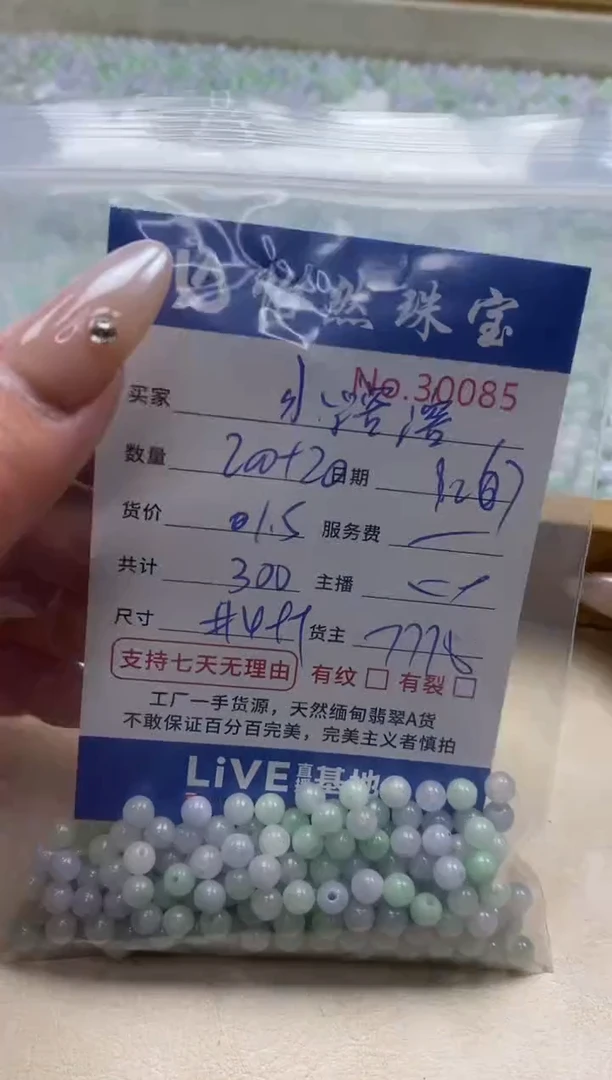 然珠宝
No.30085
买家 小
数量 200+20 日期
货价 01.5 服务费 —
共计 300 主播
尺寸 货主 7778
支持七天无理由 有纹 □ 有裂 □
工厂一手货源，天然缅甸翡翠A货
不敢保证百分百完美，完美主义者慎拍
LiVE 直播 基地